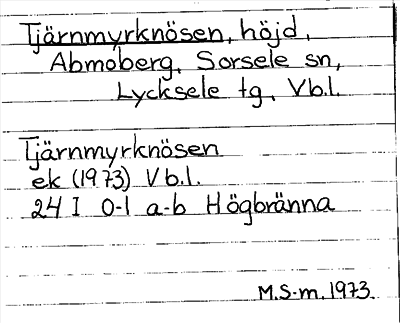 Tjärnmyrknösen, höjd,
Abmoberg, Sorsele sn,
Lycksele tg, Vb.l.
Tjärnmyrknösen
ek (1973) Vb.l.
24 I 0-1 a-b Högbränna
M.S-m. 1973.